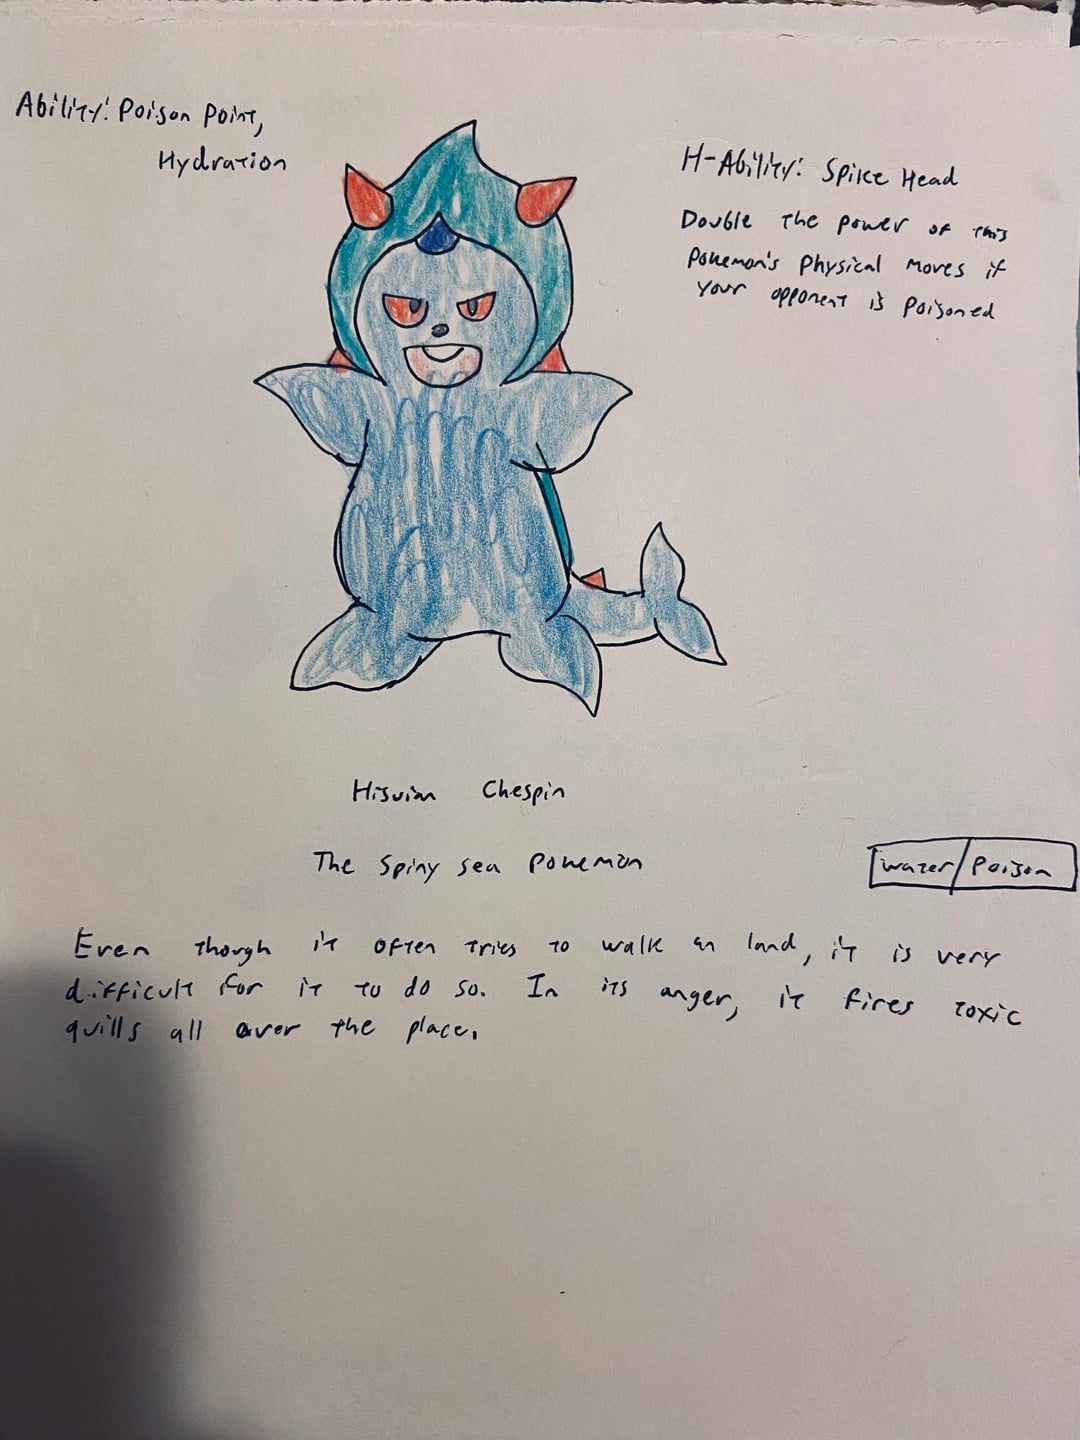 Ability: Poison Point,
Hydration
H-Ability: Spike Head
Double the power of this
Pokemon's Physical moves if
your opponent is Poisoned
Hisuian Chespin
The Spiny sea Pokemon
Water/Poison
Even though it often tries to walk on land, it is very
difficult for it to do so. In its anger, it fires toxic
quills all over the place.